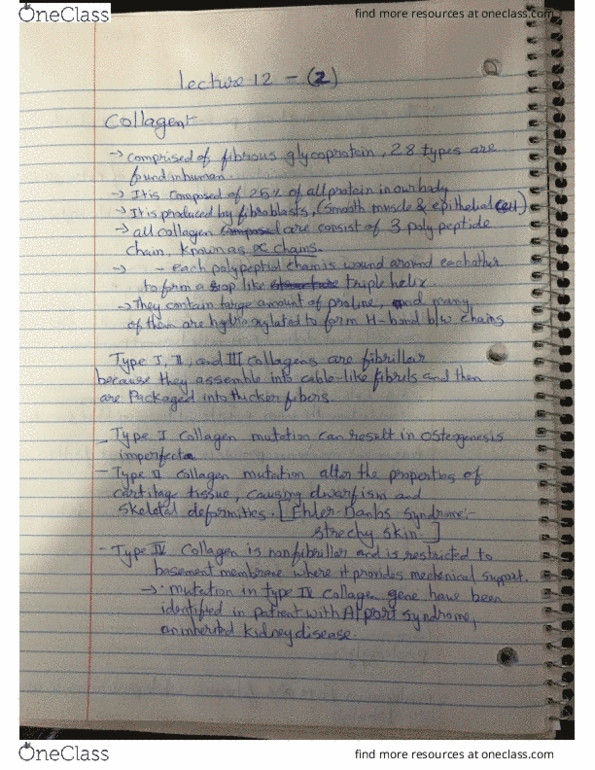 OneClass
find more resources at oneclass.com
lecture 12 - (2)
Collagent
→ comprised of fibrous glycoprotein, 28 types are
found in human.
→ It is composed of 25% of all protein in our body
→ It is produced by fibroblasts, (smooth muscle & epithelial cell)
→ all collagen composed are consist of 3 poly peptide
chain, known as ∝ chains.
→ - each polypeptid chain is wound around eachother
to form a rop like triple helix
→ They contain large amount of proline, and many
of them are hydroxylated to form H-bond b/w chains
Type I, II, and III collagens are fibrillar
because they assemble into cable-like fibrils and then
are Packaged into thicker fibers.
- Type I collagen mutation can result in osteogenesis
imperfecta
- Type II collagen mutation alter the properties of
cartilage tissue, causing dwarfism and
skeletal deformities. [Ehler-Danbs syndrome:-
strechy skin.]
- Type IV Collagen is nonfibriller and is restricted to
basement membrane where it provides mechenical support.
→ mutation in type IV collagen gene have been
identified in patient with Alport syndrome,
an inherited kidney disease.
OneClass
find more resources at oneclass.com